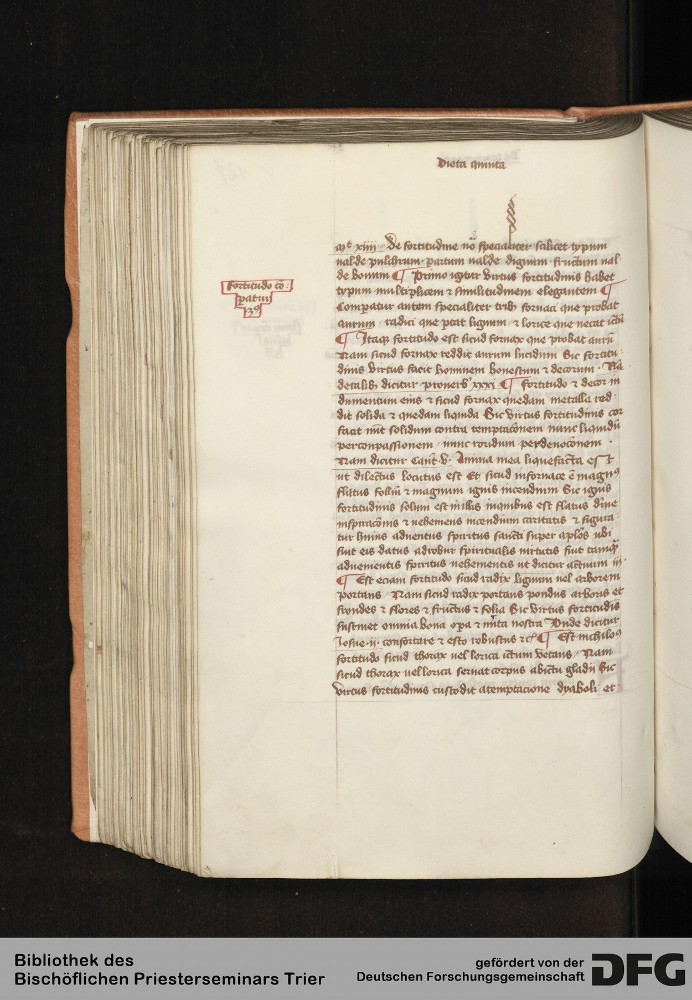 Dieta quinta
mͭͤ xiiii De fortitudine nō specialiter scilicet typum
valde pulchrum · partum valde dignum · fructum val
de bonum ¶ Primo igitur virtus fortitudinis habet
typum multiplicem ⁊ similitudinem elegantem ¶
Comparatur autem specialiter trib fornaci que probat
aurum radici que portat lignum ⁊ lorice que vetat ictū
¶ Itaqꝫ fortitudo est sicud fornax que probat aurū
Nam sicud fornax reddit aurum lucidum Sic fortitu
dinis virtus facit hominem honestum ⁊ decorum ·
de talib dicitur proverb xxxi ¶ Fortitudo ⁊ decor in
dumentum eius ⁊ sicud fornax quedam metalla red
dit solida ⁊ quedam liquida Sic virtus fortitudinis cor
facit nūc solidum contra temptacōnem nunc liquidū
per conpassionem / nunc roridum per devocōnem ·
Nam dicitur Cant v Anima mea liquefacta est
ut dilectus locutus est Et sicud in fornace ē magnꝰ
flatus follium ⁊ magnum ignis incendium Sic ignis
fortitudinis solum est in illis in quibus est flatus divine
inspiracōnis ⁊ vehemens incendium caritatis ⁊ figura
tur huius adventus spiritus sancti super aplōs ubi
fuit eis datus ad robur spiritualis virtutis fuit tamqꝫ
advenientis spiritus vehementis ut dicitur actuum ii
¶ Est eciam fortitudo sicud radix lignum vel arborem
portans Nam sicud radix portans pondus arboris et
frondes ⁊ flores ⁊ fructus ⁊ folia Sic virtus fortitudis
sustinet omnia bona opa ⁊ mīta nostra Unde dicitur
Iosue ii confortare ⁊ esto robustus ⁊c ¶ Est nichilo
fortitudo sicud thorax vel lorica ictum vetans / Nam
sicud thorax vel lorica servat corpus ab ictu gladii Sic
virtus fortitudinis custodit a temptacione dyaboli et
Fortitudo cō
patur
3ᵃ
Bibliothek des
Bischöflichen Priesterseminars Trier
gefördert von der
Deutschen Forschungsgemeinschaft
DFG